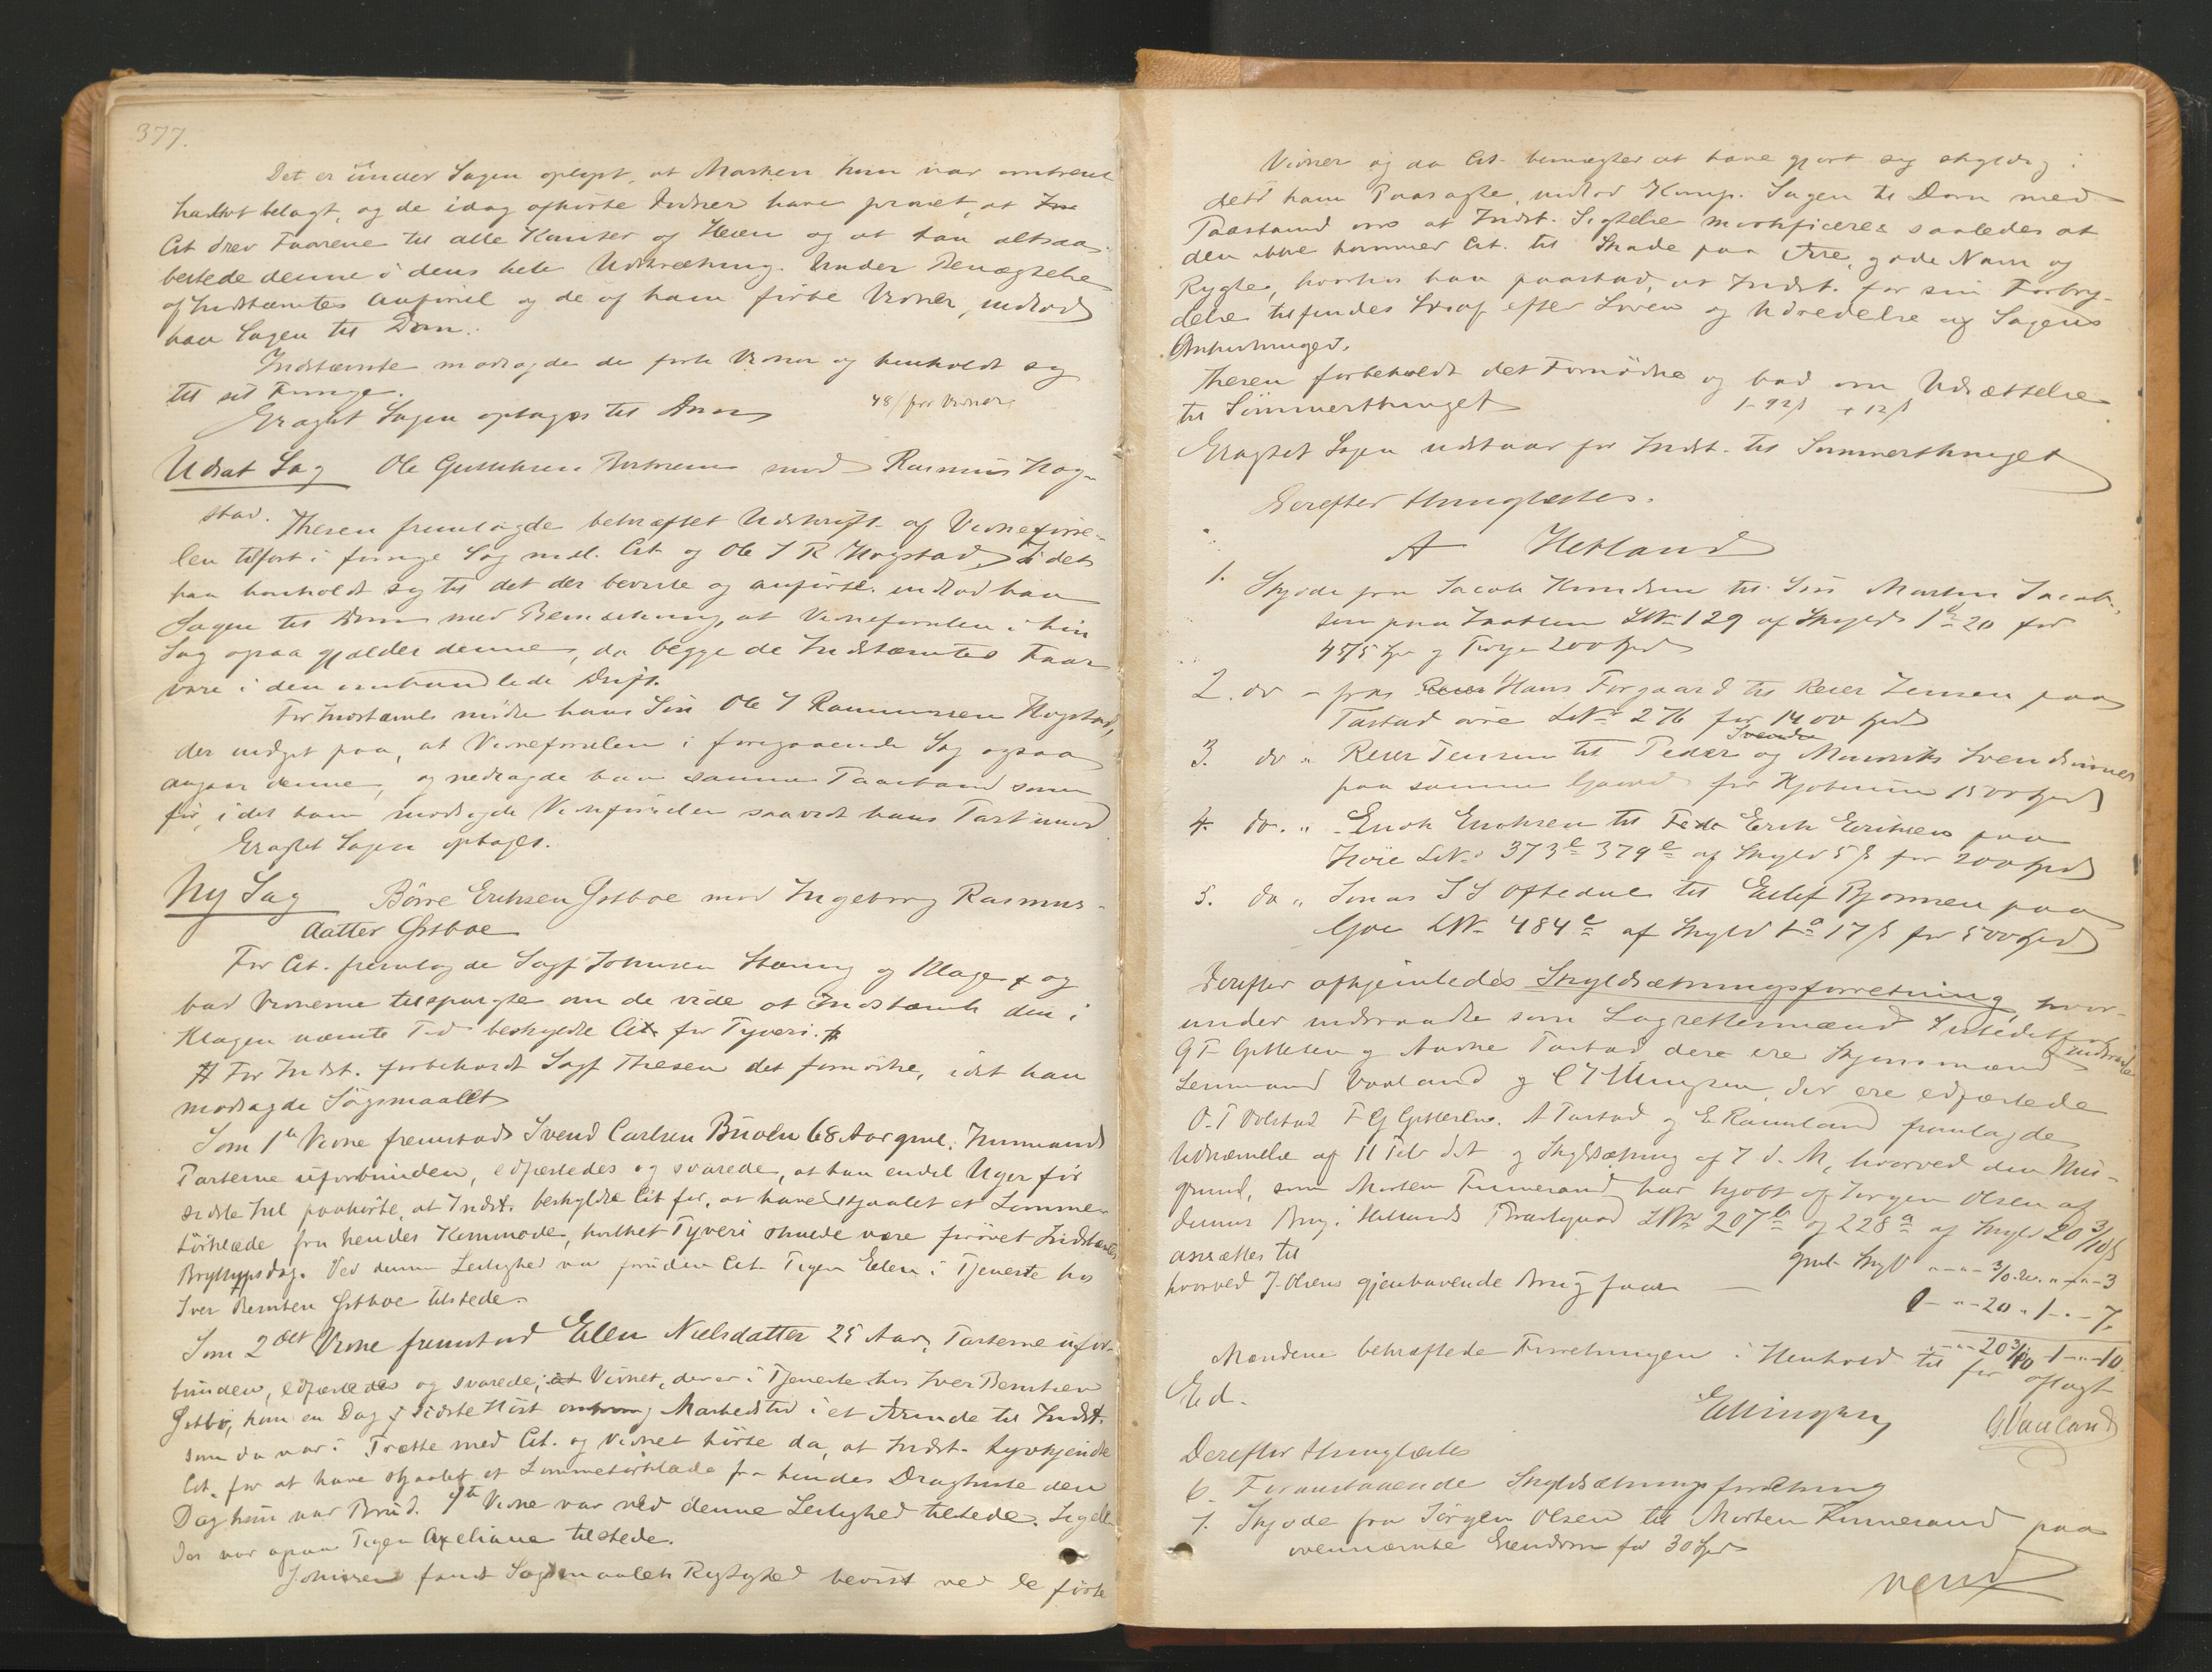 377.
Det er under Sagen oplyst, at Marken hvor var omtrent
belagt, og de idag afhørte Vidner have provet, at
Cit drev Faarene til alle Kanter og at han altsaa
beitede denne i dens hele Udstrækning. Under Benægtelse
af Indstævntes Anførsel og de af ham førte Vidner, indlod
han Sagen til Dom.
Indstævnte modsagde de førte Vidner og henholdt sig
til sit Forrige.
Eragtet Sagen optages til Dom
48 / for Vidner
Udsat Sag Ole mod Rasmus Hog-
stad.
Thesen fremlagde bekræftet Udskrift af Vidneførse-
len tilført i forrige Sag mell. Cit. og Ole J R Hogstad, idet
han henholdt sig til det der beviste og anførte, indlod han
Sagen til Dom med Bemærkning, at Vidneførselen i hin
Sag ogsaa gjælder denne, da begge de Indstævntes Faar
vare i den omhandlede Drift.
For Indstævnte mødte hans Søn Ole J Rasmussen Hogstad,
der vedget paa, at Vidneførselen i foregaaende Sag ogsaa
angaar denne, og nedlagde han samme Paastand som
før, idet han modsagde Vidneførselen saavidt hans Part
Eragtet Sagen optages.
Ny Sag Börre Erichsen Østboe mod Ingeborg Rasmus-
datter Østboe
For Cit. fremlagde Sagf Johnsen Stævning og Klage og
bad Vidnerne tilspurgte om de vide at Indstævnte den i
Klagen nævnte Tid beskyldte Cit for Tyveri.
For Indst. forbeholdt Sagf Thesen det fornødne, idet han
modsagde Søgsmaalet
Som 1te Vidne fremstod Svend Carlsen 68 Aar gml. Huusmand
Parterne uforbunden, edfæstedes og svarede, at han endel Uger før
sidste Jul paahørte, at Indst. beskyldte Cit for, at have stjaalet et Lomme-
törklæde fra hendes Kommode, hvilket Tyveri skulde være prövet Indstævntes
Bryllupsdag. Ved denne Leilighed var foruden Cit. Pigen Ellen i Tjeneste hos
Iver Berntsen Østboe tilstede.
Som 2det Vidne fremstod Ellen Nielsdatter 25 Aar, Parterne ufor-
bunden, edfæstedes og svarede; Vidnet, der er i Tjeneste hos Iver Berntsen
Østbö, kom en Dag sidste Höst Markedstid i et Ærinde til Indst.
som da var i Trætte med Cit. og Vidnet hörte da, at Indst. tyvkjendte
Cit. for at have stjaalet et Lommetörklæde fra hendes Dragkiste den
Dag hun var Brud. 1te Vidne var ved denne Leilighed tilstede. Ligele-
des var ogsaa Pigen Axeliane tilstede.
Johnsen fandt Søgsmaalets Rigtighed bevist ved de förte
Vidner og da Cit. benægter at have gjort sig skyldig i
det ham Paasagte, indlod Komp. Sagen til Dom med
Paastand om at Indst. Sigtelse mortificeres saaledes at
den ikke kommer Cit. til Skade paa Ære, gode Navn og
Rygte, hvorhos han paastod, at Indst. for sin Forbry-
delse tilfindes Straf efter Loven og Udredelse af Sagens
Omkostninger.
Thesen forbeholdt det Fornødne og bad om Udsættelse
til Sommerthinget
Eragtet Sagen udstaar for Indst. til Sommerthinget
Derefter thinglæstes.
A Hetland
1. Skjøde fra Jacob Knudsen til Søn Morten Jacob-
sen paa LNo 129 af Skyld 1 20 for
475 Spd og 200 Spd
2. do - fra Hans Forgaard til Reier Jensen paa
Tastad øvre LNo 276 for 1400 Spd
3. do " Reier Jensen til Peder og Svendsønner
paa samme Gaard for Kjøbesum 1500 Spd
4. do. " Enok Enoksen til Erik Eriksen paa
LNo 373 379 af Skyld 5 ß for 200 Spd
5. do " Jonas J S Oftedal til Eilef Bjørnsen paa
Goe LNo 484 af Skyld 1 17 ß for 500 Spd
Derefter afhjemledes Skyldsætningsforretning, hvor-
under indraadte som Lagrettesmænd Istedetfor
G T Gottesen og Aadne Tastad der ere Skjønsmænd indraadte
Lensmand Vaaland og der ere edfæstede
O. T Volstad T G Gottesen. A Tastad og E Raunland fremlagde
Udnævnelse af 11 Feb d.A. og Skyldsætning af 7 d. M, hvorved den Huus-
grund, som Morten Finnesand har kjøbt af Jørgen Olsen af
dennes Brug i Hetlands Præstegaard LNo 207 og 228 af Skyld 20 3/10 ß
ansættes til gml Skyld " - " - 3/10 " - " - 3
hvorved J. Olsens gjenhavende Brug faar " - 20 " 1 - " - 7
" - " - 20 3/10 - 1 - " - 10
Mændene bekræftede Forretningen i Henhold til før aflagt
Ed.
Ellingsen G Vaaland
Derefter thinglæstes
6. Foranstaaende Skyldsætningsforretning
7. Skjøde fra Jörgen Olsen til Morten Finnesand paa
ovennævnte Eiendom for 30 Spd
vend